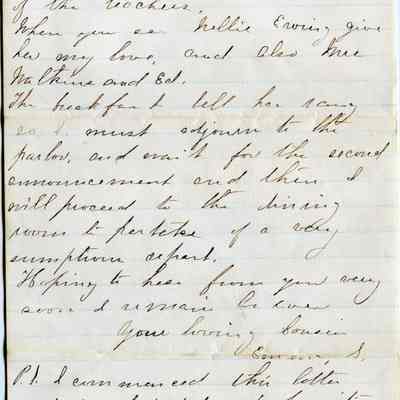 of the teachers.
When you see Nellie Ewing give
her my love, and also Mrs
Watkins and Ed.
The breakfast bell has rang
so I must adjourn to the
parlor, and wait for the second
announcement and then I
will proceed to the dining
room to partake of a very
sumptious repast.
Hoping to hear from you very
soon I remain as ever
Your loving Cousin
Emma S.
P.S. I commenced this letter